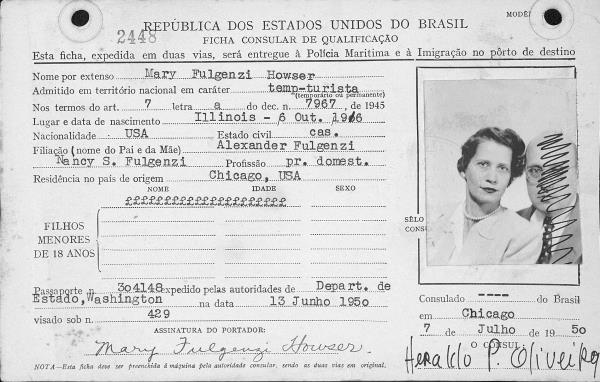 MODÊ
2448
REPÚBLICA DOS ESTADOS UNIDOS DO BRASIL
FICHA CONSULAR DE QUALIFICAÇÃO
Esta ficha, expedida em duas vias, será entregue à Polícia Marítima e à Imigração no pôrto de destino
Nome por extenso Mary Fulgenzi Howser
Admitido em território nacional em caráter temp-turista
(temporário ou permanente)
Nos termos do art. 7 letra a do dec. n. 7967, de 1945
Lugar e data de nascimento Illinois - 6 Out. 1916
Nacionalidade USA Estado civil cas.
Filiação (nome do Pai e da Mãe) Alexander Fulgenzi
Nancy S. Fulgenzi Profissão pr. domest.
Residência no país de origem Chicago, USA
NOME IDADE SEXO
FILHOS
MENORES
DE 18 ANOS
££££££££££££££££££££££
Passaporte n. 304148 expedido pelas autoridades de Depart. de
Estado, Washington na data 13 Junho 1950
visado sob n. 429
ASSINATURA DO PORTADOR:
Mary Fulgenzi Howser.
NOTA—Esta ficha deve ser preenchida à máquina pela autoridade consular, sendo as duas vias em original.
SÊLO
CONS
Consulado ---- do Brasil
em Chicago
7 de Julho de 1950
O CONSUL:
Heraldo P. Oliveira